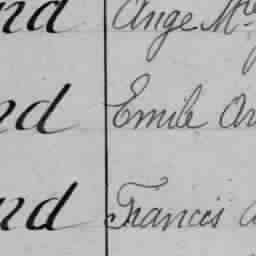 nd Ange Mre
nd Emile
nd Francis